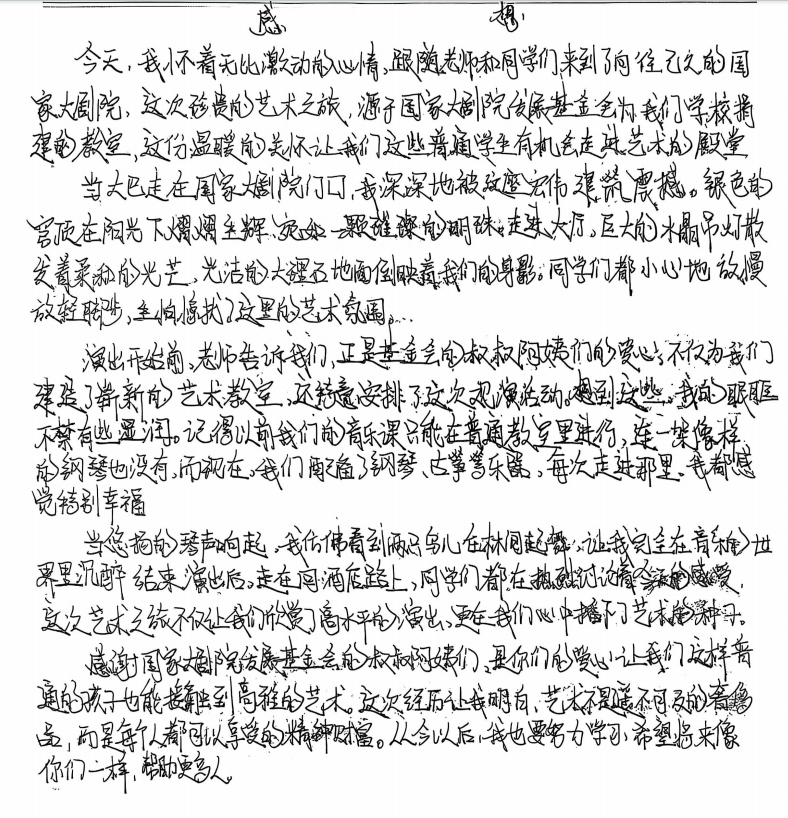 感想
今天，我怀着无比激动的心情，跟随老师和同学们来到了向往已久的国
家大剧院，这次珍贵的艺术之旅，源于国家大剧院发展基金会为我们学校捐
建的教室，这份温暖的关怀让我们这些普通学生有机会走进艺术的殿堂
当大巴走在国家大剧院门口，我深深地被这座宏伟建筑震撼。银色的
穹顶在阳光下熠熠生辉，宛如一颗璀璨的明珠。走进大厅，巨大的水晶吊灯散
发着柔和的光芒，光洁的大理石地面倒映着我们的身影。同学们都小心地放慢
放轻脚步，生怕惊扰了这里的艺术氛围。..
演出开始前，老师告诉我们，正是基金会的叔叔阿姨们的爱心，不仅为我们
建造了崭新的艺术教室，还特意安排了这次观演活动。想到这些，我的眼眶
不禁有些湿润。记得以前我们的音乐课只能在普通教室里进行，连一架像样
的钢琴也没有，而现在，我们配备了钢琴、古筝等乐器，每次走进那里，我都感
觉特别幸福
当悠扬的琴声响起，我仿佛看到两只鸟儿在林间起舞，让我完全在音乐的世
界里沉醉 结束演出后，走在回酒店路上，同学们都在热烈讨论着今天的感受，
这次艺术之旅不仅让我们欣赏了高水平的演出，更在我们心中播下了艺术的种子。
感谢国家大剧院发展基金会的叔叔阿姨们，是你们的爱心让我们这样普
通的孩子也能接触到高雅的艺术。这次经历让我明白，艺术不是遥不可及的奢侈
品，而是每个人都可以享受的精神财富。从今以后，我也要努力学习，希望将来像
你们一样，帮助更多人。